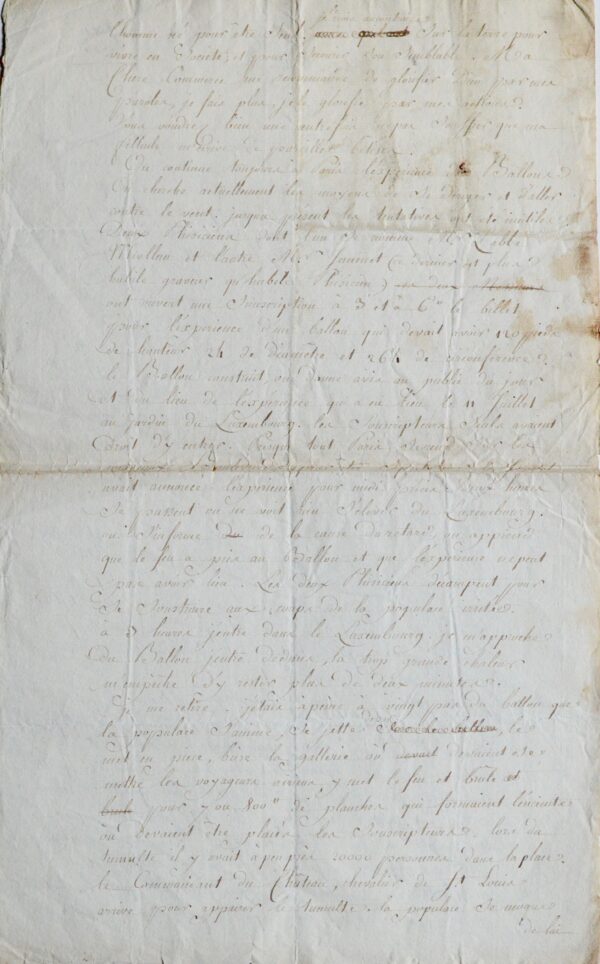 L'homme né pour être seul sur la terre pour
vivre en Société, et pour Secourir Son Semblable. M. da
glorifier Dieu par mes
paroles, je fais plus, je le glorifie par mes actions.
Vous voudrez bien une autre fois ne pas Souffrir que ma
On continue toujours à Paris l'expérience des Ballons.
On cherche actuellement les moyens de se diriger et d'aller
contre le vent. jusqu'à présent les tentatives ont été inutiles.
Deux Phisiciens dont l'un se nomme Mr. L'abbé
Miollan et l'autre Mr. Janinet (ce dernier est plus
habile graveur qu'habile Phisicien)
ont ouvert une Souscription à 3 et à 6 le billet
pour l'expérience d'un ballon qui devait avoir 120 pieds
de hauteur 84 de diamètre et 264 de circonférence.
le Ballon construit, on donne avis au public du jour
et du lieu de l'expérience qui a eu lieu le 11 Juillet
au jardin du Luxembourg. les Souscripteurs Seuls avaient
Droit d'y entrer. Presque tout Paris Se rend sur les
avait annoncé l'expérience pour midi précis deux heures
Se passent on ne voit rien S'élever du Luxembourg.
on S'informe de la cause du retard, on apprend
que le feu a pris au Ballon et que l'expérience ne peut
pas avoir lieu. Les deux Phisiciens décampent pour
Se Soustraire aux coups de la populace irritée.
à 5 heures j'entre dans le Luxembourg. je m'approche
du Ballon j'entre dedans, la trop grande chaleur
m'empêche d'y rester plus de deux minutes.
Je me retire. j'étais à peine à vingt pas du ballon que
la populace S'anime, Se jette dessus, le
met en pièce, brise la gallerie où devaient être
les voyageurs aëriens, y met le feu et brule
pour 7 ou 800 de planches qui formaient l'enceinte
où devaient être placés les Souscripteurs. lors du
tumulte il y avait à peu près 20000 personnes dans la place.
le Commandant du Château, chevalier de St Louis
arrive pour appaiser le tumulte. la populace Se moque
de lui